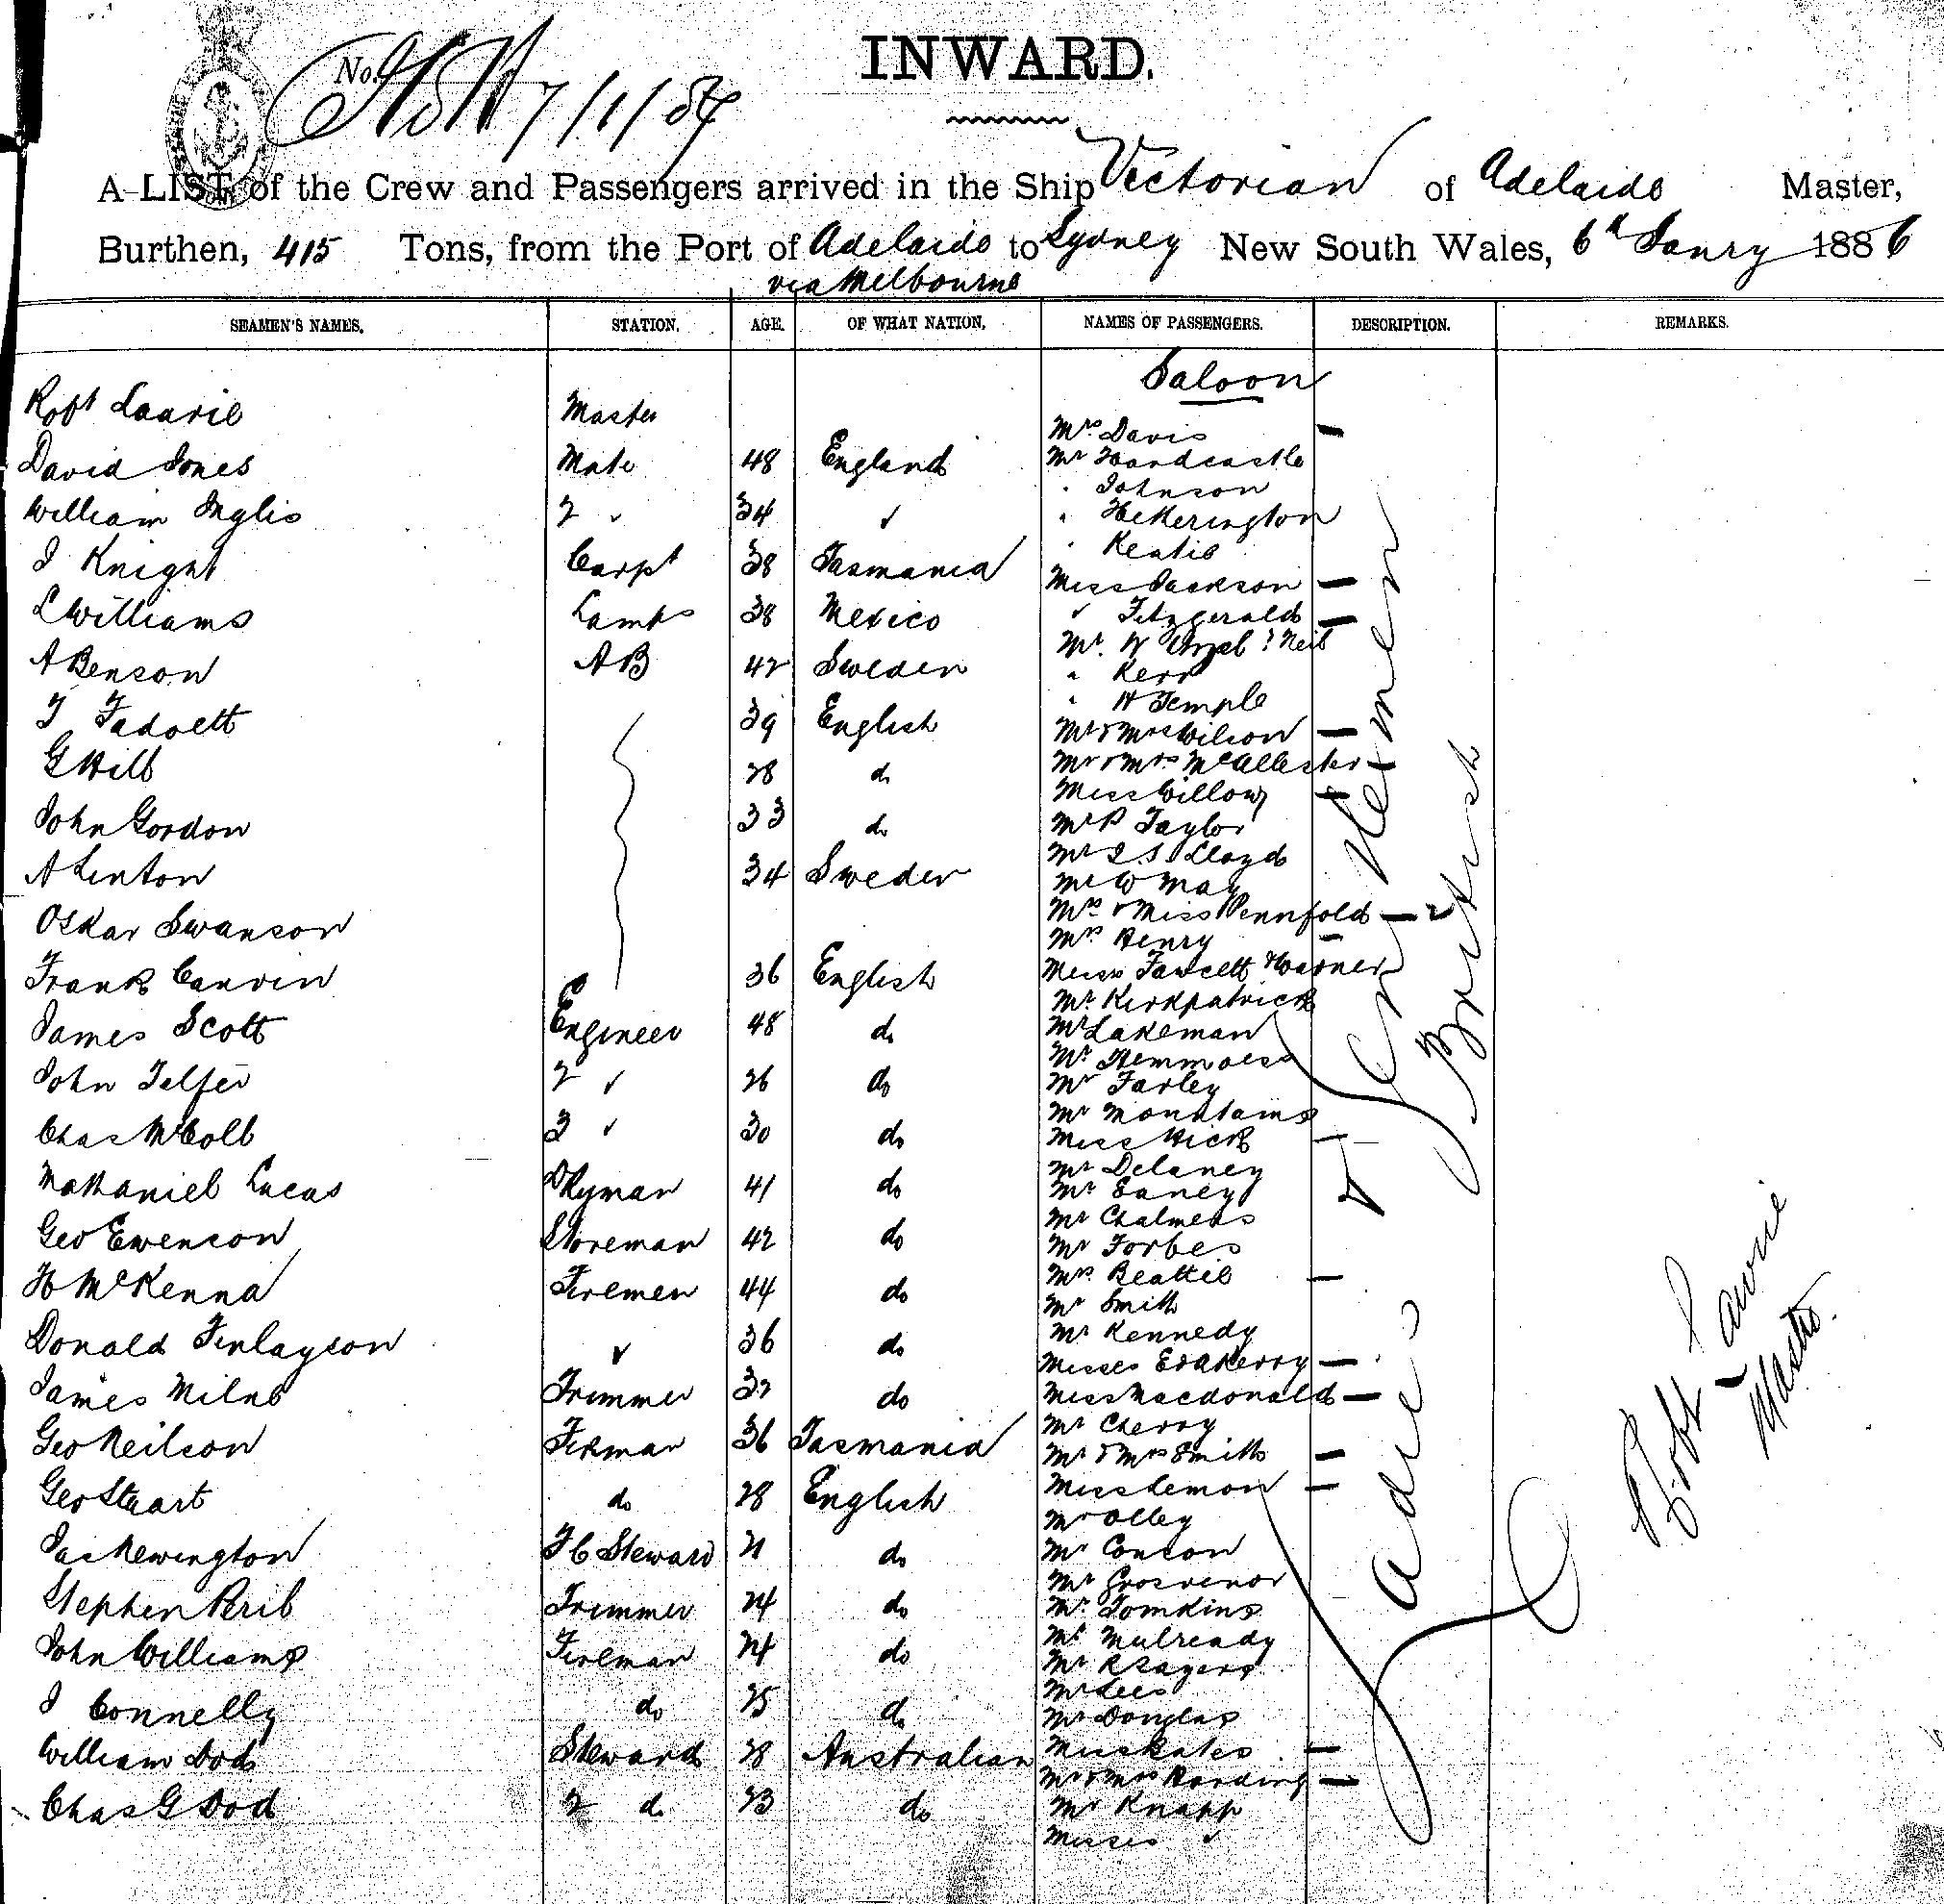 INWARD.
No. 7/1/84
A LIST of the Crew and Passengers arrived in the Ship Victorian of Adelaide Master,
Burthen, 415 Tons, from the Port of Adelaide to Sydney New South Wales, 6th Janry 1886
via Melbourne
SEAMEN'S NAMES. STATION. AGE. OF WHAT NATION. NAMES OF PASSENGERS. DESCRIPTION. REMARKS.
Saloon
Robt Laurie Master
Mrs Davis —
David Jones Mate 48 England Mr Hardcastle
" Johnson
William Inglis 2 " 34 " " Hetherington
" Keatie
J Knight Carpt 38 Tasmania
Miss Jackson —
L Williams Lamps 38 Mexico " Fitzgerald —
Mr. W Neil
A Benson AB 42 Sweden " Kerr
" H Temple
T 39 English
Mr & Mrs Wilson —
G Hill 28 do Mr & Mrs McAllester —
Miss Willow —
John Gordon 33 do Mr P Taylor
Mr J S Lloyd
A Linton 34 Sweden Mr W May
Mrs & Miss Pennfold — 2
Oskar Swanson
Mrs Henry —
Frank 36 English Misses Fawcett & Warner
Mr Kirkpatrick
James Scott Engineer 48 do Mr Lakeman
Mr
John Telfer 2 " 26 do Mr Farley
Mr
Chas McColl 3 " 30 do Miss Hick —
Mr Delaney
Nathaniel Lucas Dkyman 41 do Mr
Mr Chalmers
Geo Ewenson Storeman 42 do Mr Forbes
Mrs Beattie —
H McKenna Firemen 44 do Mr Smith
Mr Kennedy
Donald Finlayson " 36 do Misses E & A Kerry —
James Milne Trimmer 32 do Miss Macdonald —
Mr Cherry
Geo Neilson Firman 36 Tasmania Mr & Mrs Smith —
Geo Stuart do 28 English Miss Lemon —
Mr Olley
Jas Newington F C Steward 21 do Mr Conson
Mr Grosvenor
Stephen Trimmer 24 do Mr Tomkins
John Williams Fireman 24 do Mr Mulready
Mr R Sayers
Mr Lees
J Connelly do 25 do Mr Douglas
William Dod Steward 28 Australian Miss Kates —
Mr & Mrs Harding —
Chas G Dod 2 do 23 do Mr Knapp
Misses "
Ladies & Gentlemen
British
Robt Lawrie
Master.